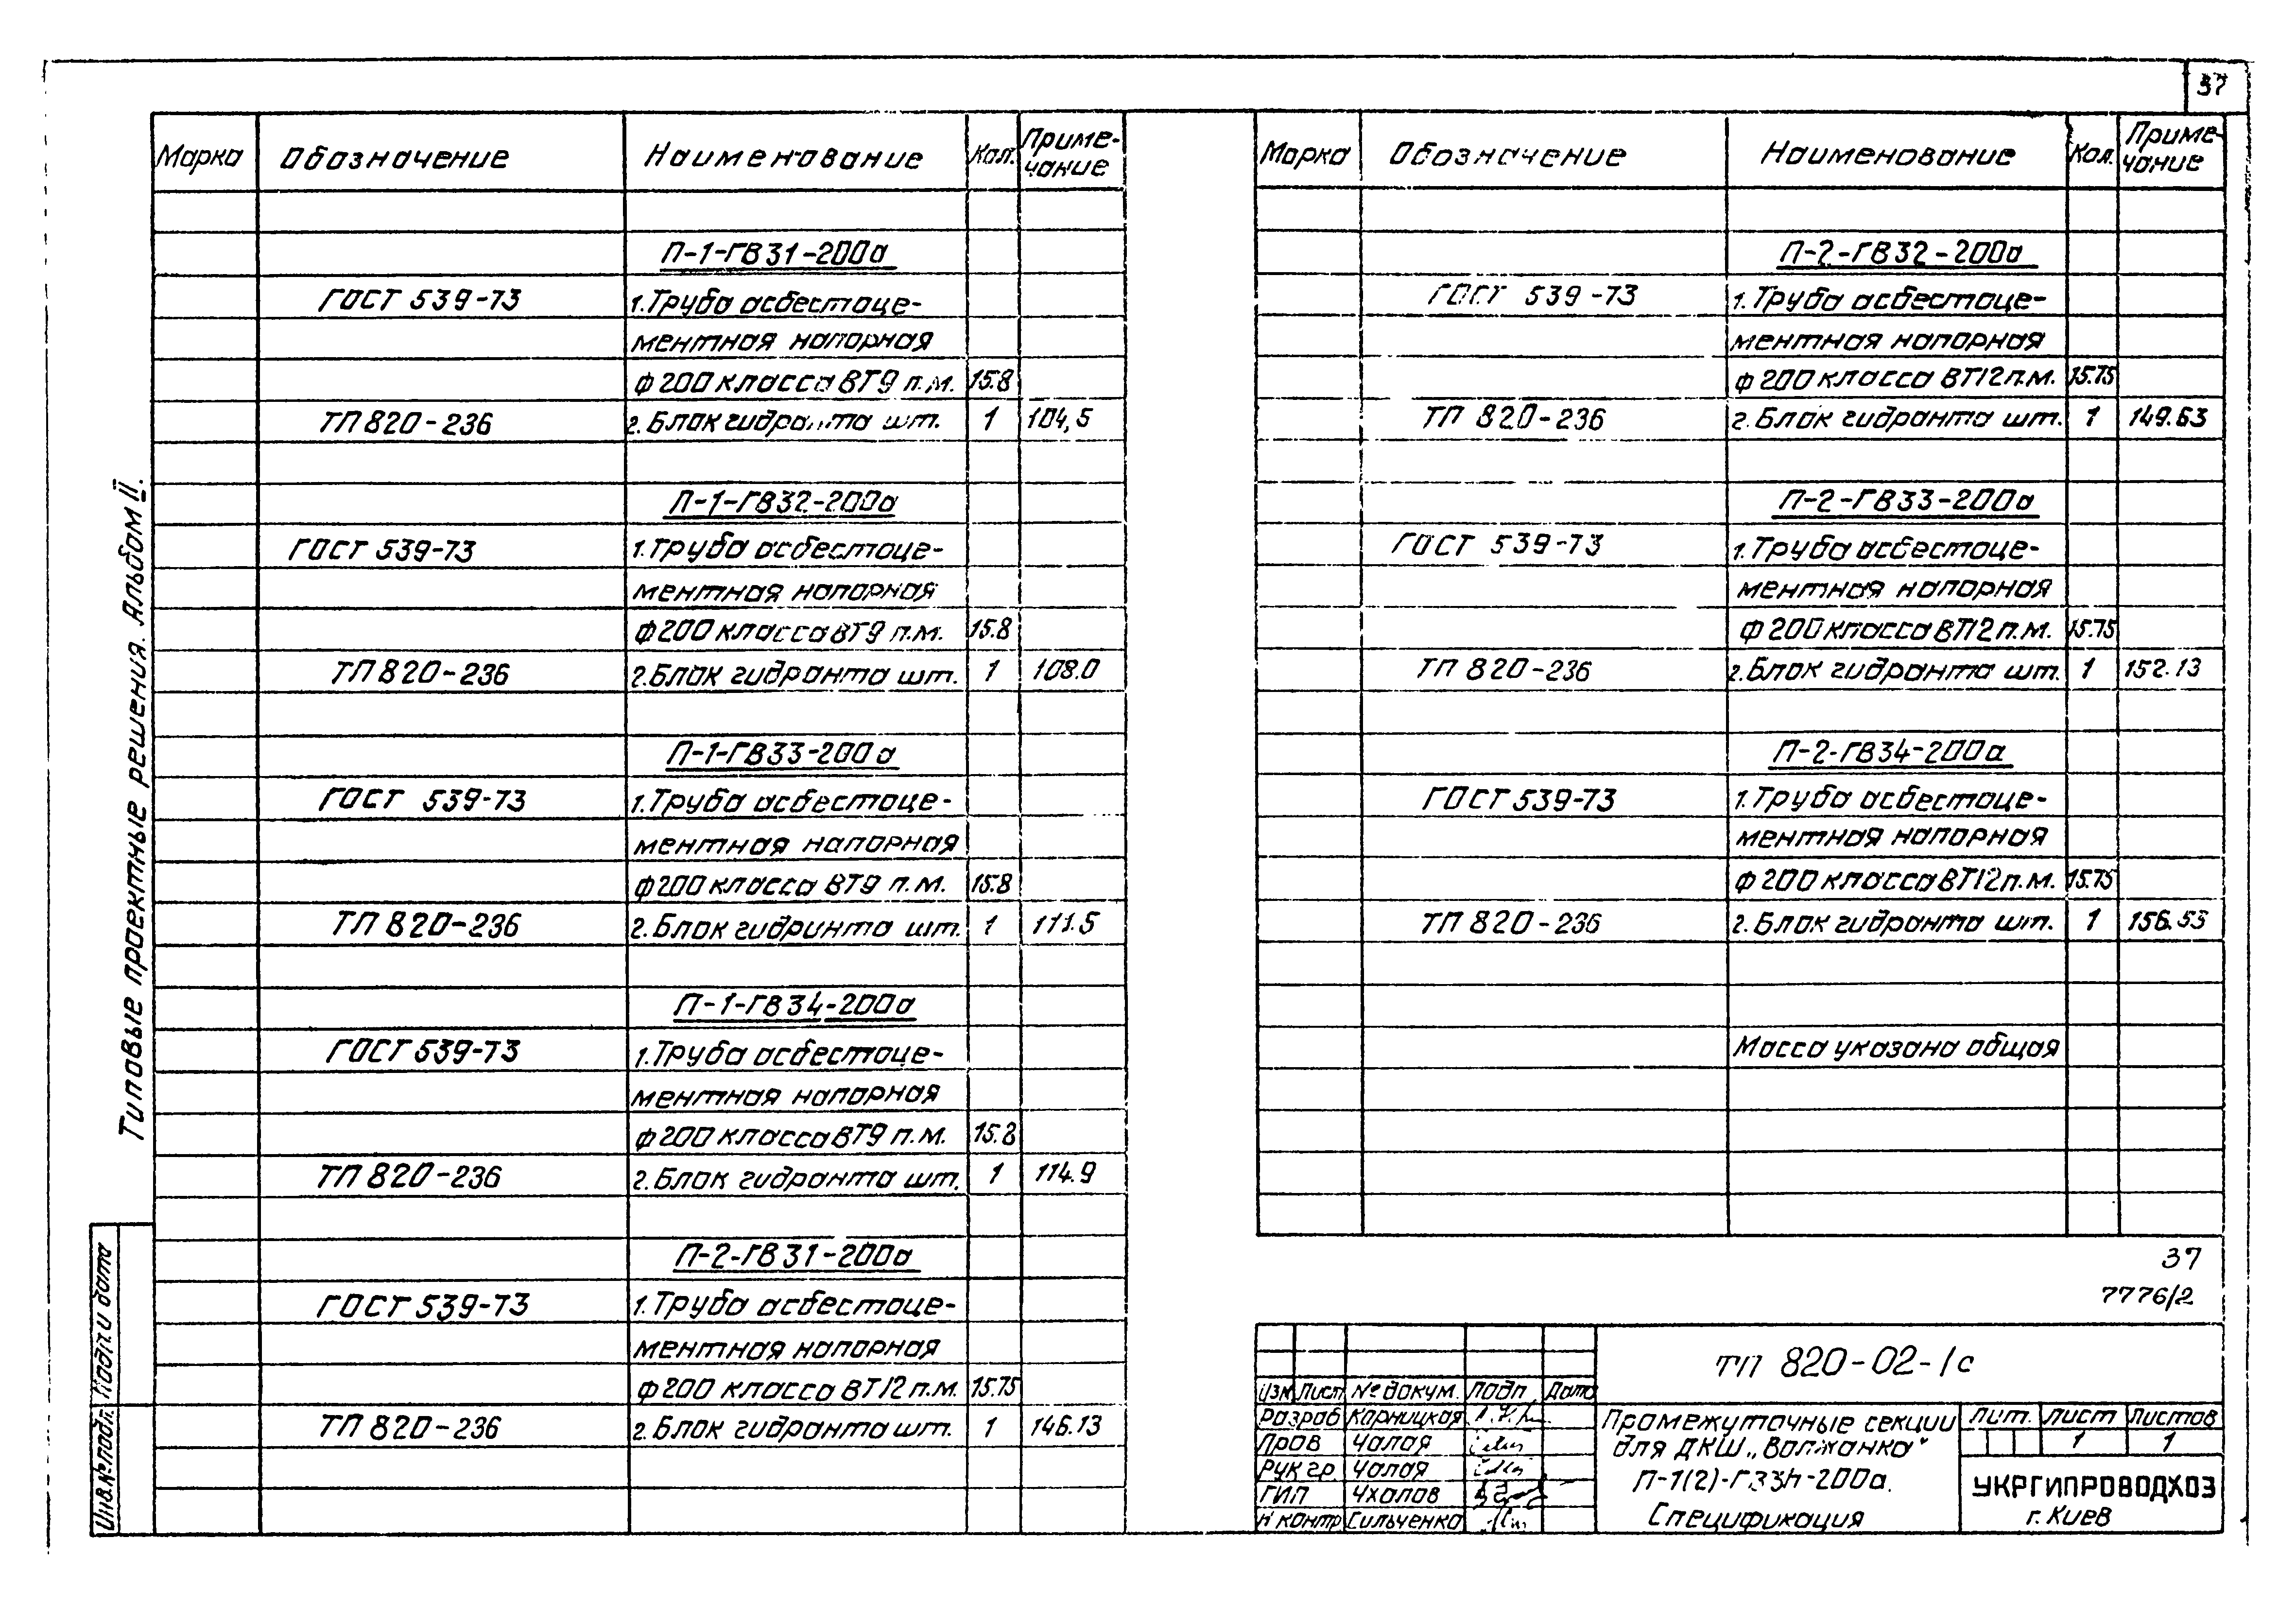 37
Марка Обозначение Наименование Кол. Приме-
чание
П-1-ГВ31-200а
ГОСТ 539-73 1. Труба асбестоце-
ментная напорная
ф200 класса ВТ9 п.м. 15.8
ТП 820-236 2. Блок гидранта шт. 1 104,5
П-1-ГВ32-200а
ГОСТ 539-73 1. Труба асбестоце-
ментная напорная
ф200 класса ВТ9 п.м. 15.8
ТП 820-236 2. Блок гидранта шт. 1 108.0
П-1-ГВ33-200а
ГОСТ 539-73 1. Труба асбестоце-
ментная напорная
ф200 класса ВТ9 п.м. 15.8
ТП 820-236 2. Блок гидранта шт. 1 111.5
П-1-ГВ34-200а
ГОСТ 539-73 1. Труба асбестоце-
ментная напорная
ф200 класса ВТ9 п.м. 15.8
ТП 820-236 2. Блок гидранта шт. 1 114.9
П-2-ГВ31-200а
ГОСТ 539-73 1. Труба асбестоце-
ментная напорная
ф200 класса ВТ12 п.м. 15.75
ТП 820-236 2. Блок гидранта шт. 1 146.13
Марка Обозначение Наименование Кол. Приме-
чание
П-2-ГВ32-200а
ГОСТ 539-73 1. Труба асбестоце-
ментная напорная
ф200 класса ВТ12 п.м. 15.75
ТП 820-236 2. Блок гидранта шт. 1 149.63
П-2-ГВ33-200а
ГОСТ 539-73 1. Труба асбестоце-
ментная напорная
ф200 класса ВТ12 п.м. 15.75
ТП 820-236 2. Блок гидранта шт. 1 152.13
П-2-ГВ34-200а
ГОСТ 539-73 1. Труба асбестоце-
ментная напорная
ф200 класса ВТ12 п.м. 15.75
ТП 820-236 2. Блок гидранта шт. 1 156.53
Масса указана общая
37
7776/2
Типовые проектные решения. Альбом II.
Инв.№ подл. Подп и дата
ТП 820-02-1с
Изм Лист № докум. Подп Дата
Разраб Карницкая
Пров Чалая
Рук гр. Чалая
ГИП Чхолов
Н контр Сильченко
Промежуточные секции
для ДКШ „Волжанка"
П-1(2)-ГВ3h-200а.
Спецификация
Лит. Лист Листов
1 1
УКРГИПРОВОДХОЗ
г. Киев